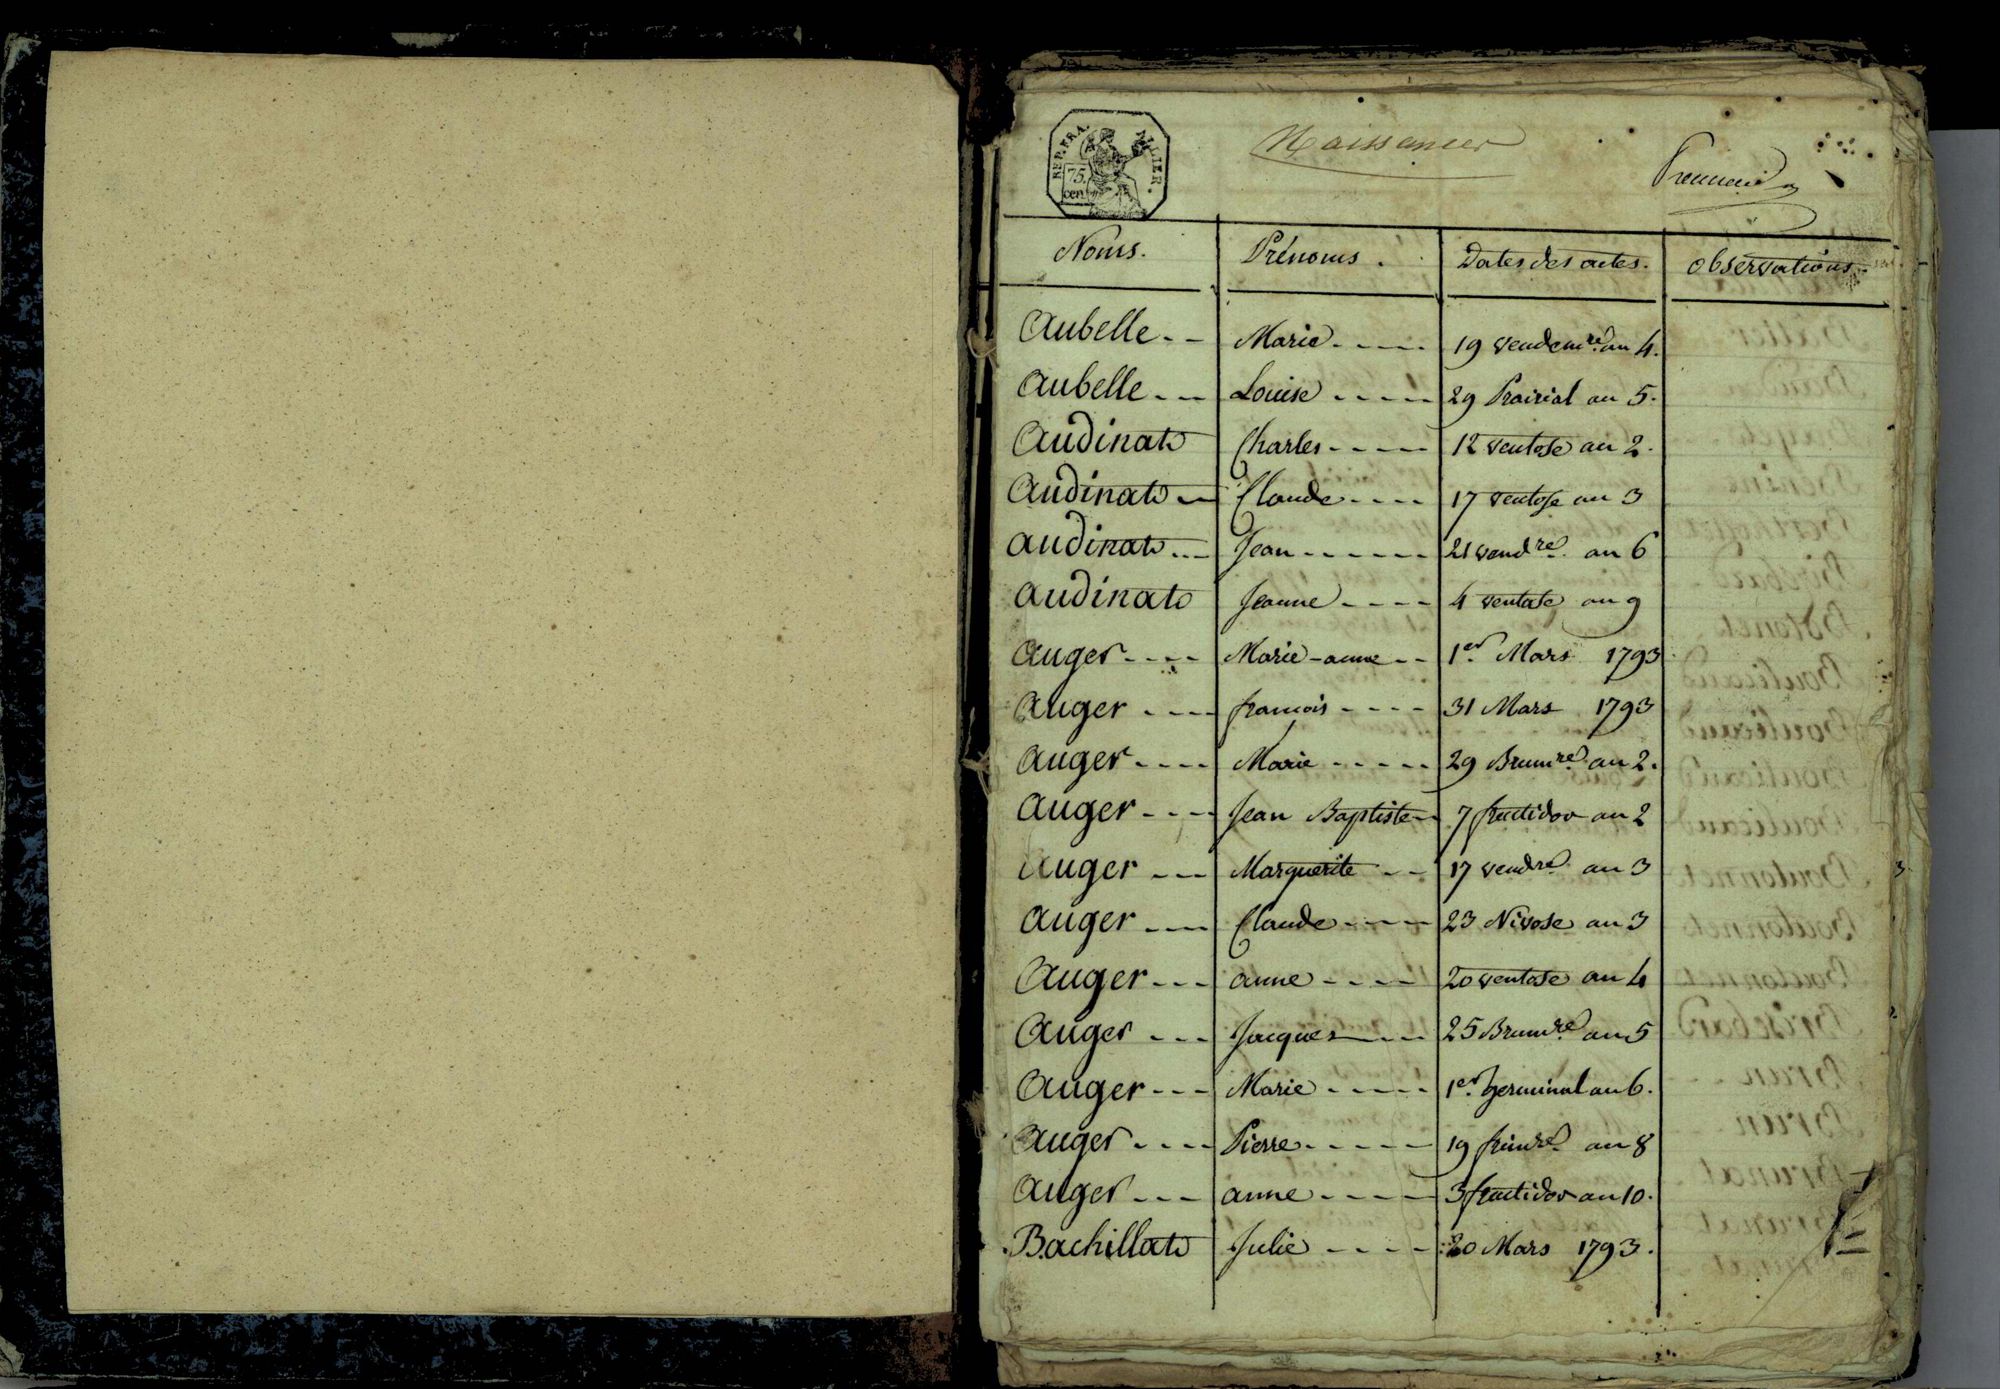 REP. FRA. ALLIER.
75. cen.
Naissances
Noms. Prénoms. Dates des actes. Observations.
Aubelle - - Marie - - - - 19 vendemre. an 4.
Aubelle - - - Louise - - - - - 29 Prairial an 5.
Audinat Charles - - - - - 12 ventose an 2.
Audinat - Claude - - - - 17 ventose an 3
Audinat - - - Jean - - - - - - 21 vendre. an 6
Audinat Jeanne - - - - 4 ventose an 9
Auger - - - - Marie-anne - - 1er. Mars 1793
Auger - - - - francois - - - - 31 Mars 1793
Auger - - - - Marie - - - - - 29 Brumre. an 2.
Auger - - - - Jean Baptiste - 7 fructidor an 2
Auger - - - Marguerite - - 17 vendre. an 3
Auger - - - Claude - - - - 23 Nivose an 3
Auger - - - anne - - - - 20 ventose an 4
Auger - - - Jacques - - - 25 Brumre. an 5
Auger - - - Marie - - - - - 1er. germinal an 6.
Auger - - - - Pierre - - - - - 19 frimre. an 8
Auger - - - anne - - - - 3 fructidor an 10.
Bachillat Julie - - - - 20 Mars 1793.